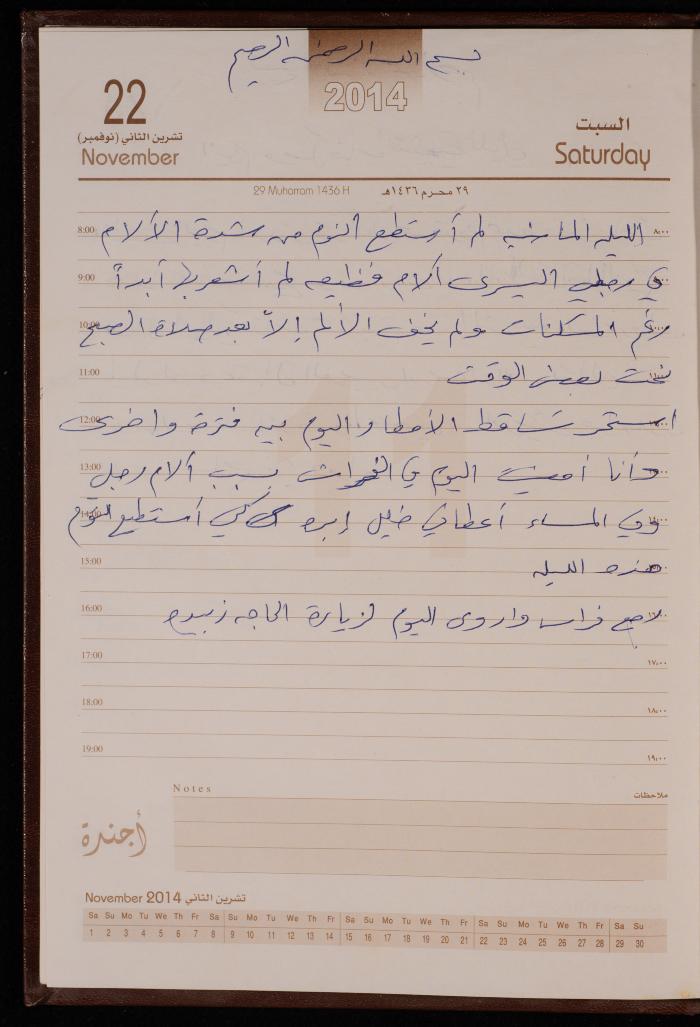 بسم الله الرحمن الرحيم
2014
22
تشرين الثاني (نوفمبر)
November
السبت
Saturday
29 Muharram 1436 H
٢٩ محرم ١٤٣٦هـ
8:00 الليله الماضيه لم أستطع النوم من شدة الألام ٨،٠٠
9:00 في رجلي اليسرى ألام فظيعه لم أشعر بها أبداً
10:00 رغم المسكنات ولم يخف الألم إلاّ بعد صلاة الصبح
11:00 نمت بعض الوقت
12:00 استمر تساقط الأمطار اليوم بين فترة واخرى
13:00 وأنا أمضيت اليوم في الفراش بسبب ألام رجلي
14:00 وفي المساء أعطاني خليل إبره كي أستطيع النوم
15:00 هذه الليله
16:00 فراس واروى اليوم لزيارة الحاجه زبيده
17:00 ١٧،٠٠
18:00 ١٨،٠٠
19:00 ١٩،٠٠
Notes ملاحظات
أجندة
November 2014 تشرين الثاني
Sa Su Mo Tu We Th Fr Sa Su Mo Tu We Th Fr Sa Su Mo Tu We Th Fr Sa Su Mo Tu We Th Fr Sa Su
1 2 3 4 5 6 7 8 9 10 11 12 13 14 15 16 17 18 19 20 21 22 23 24 25 26 27 28 29 30